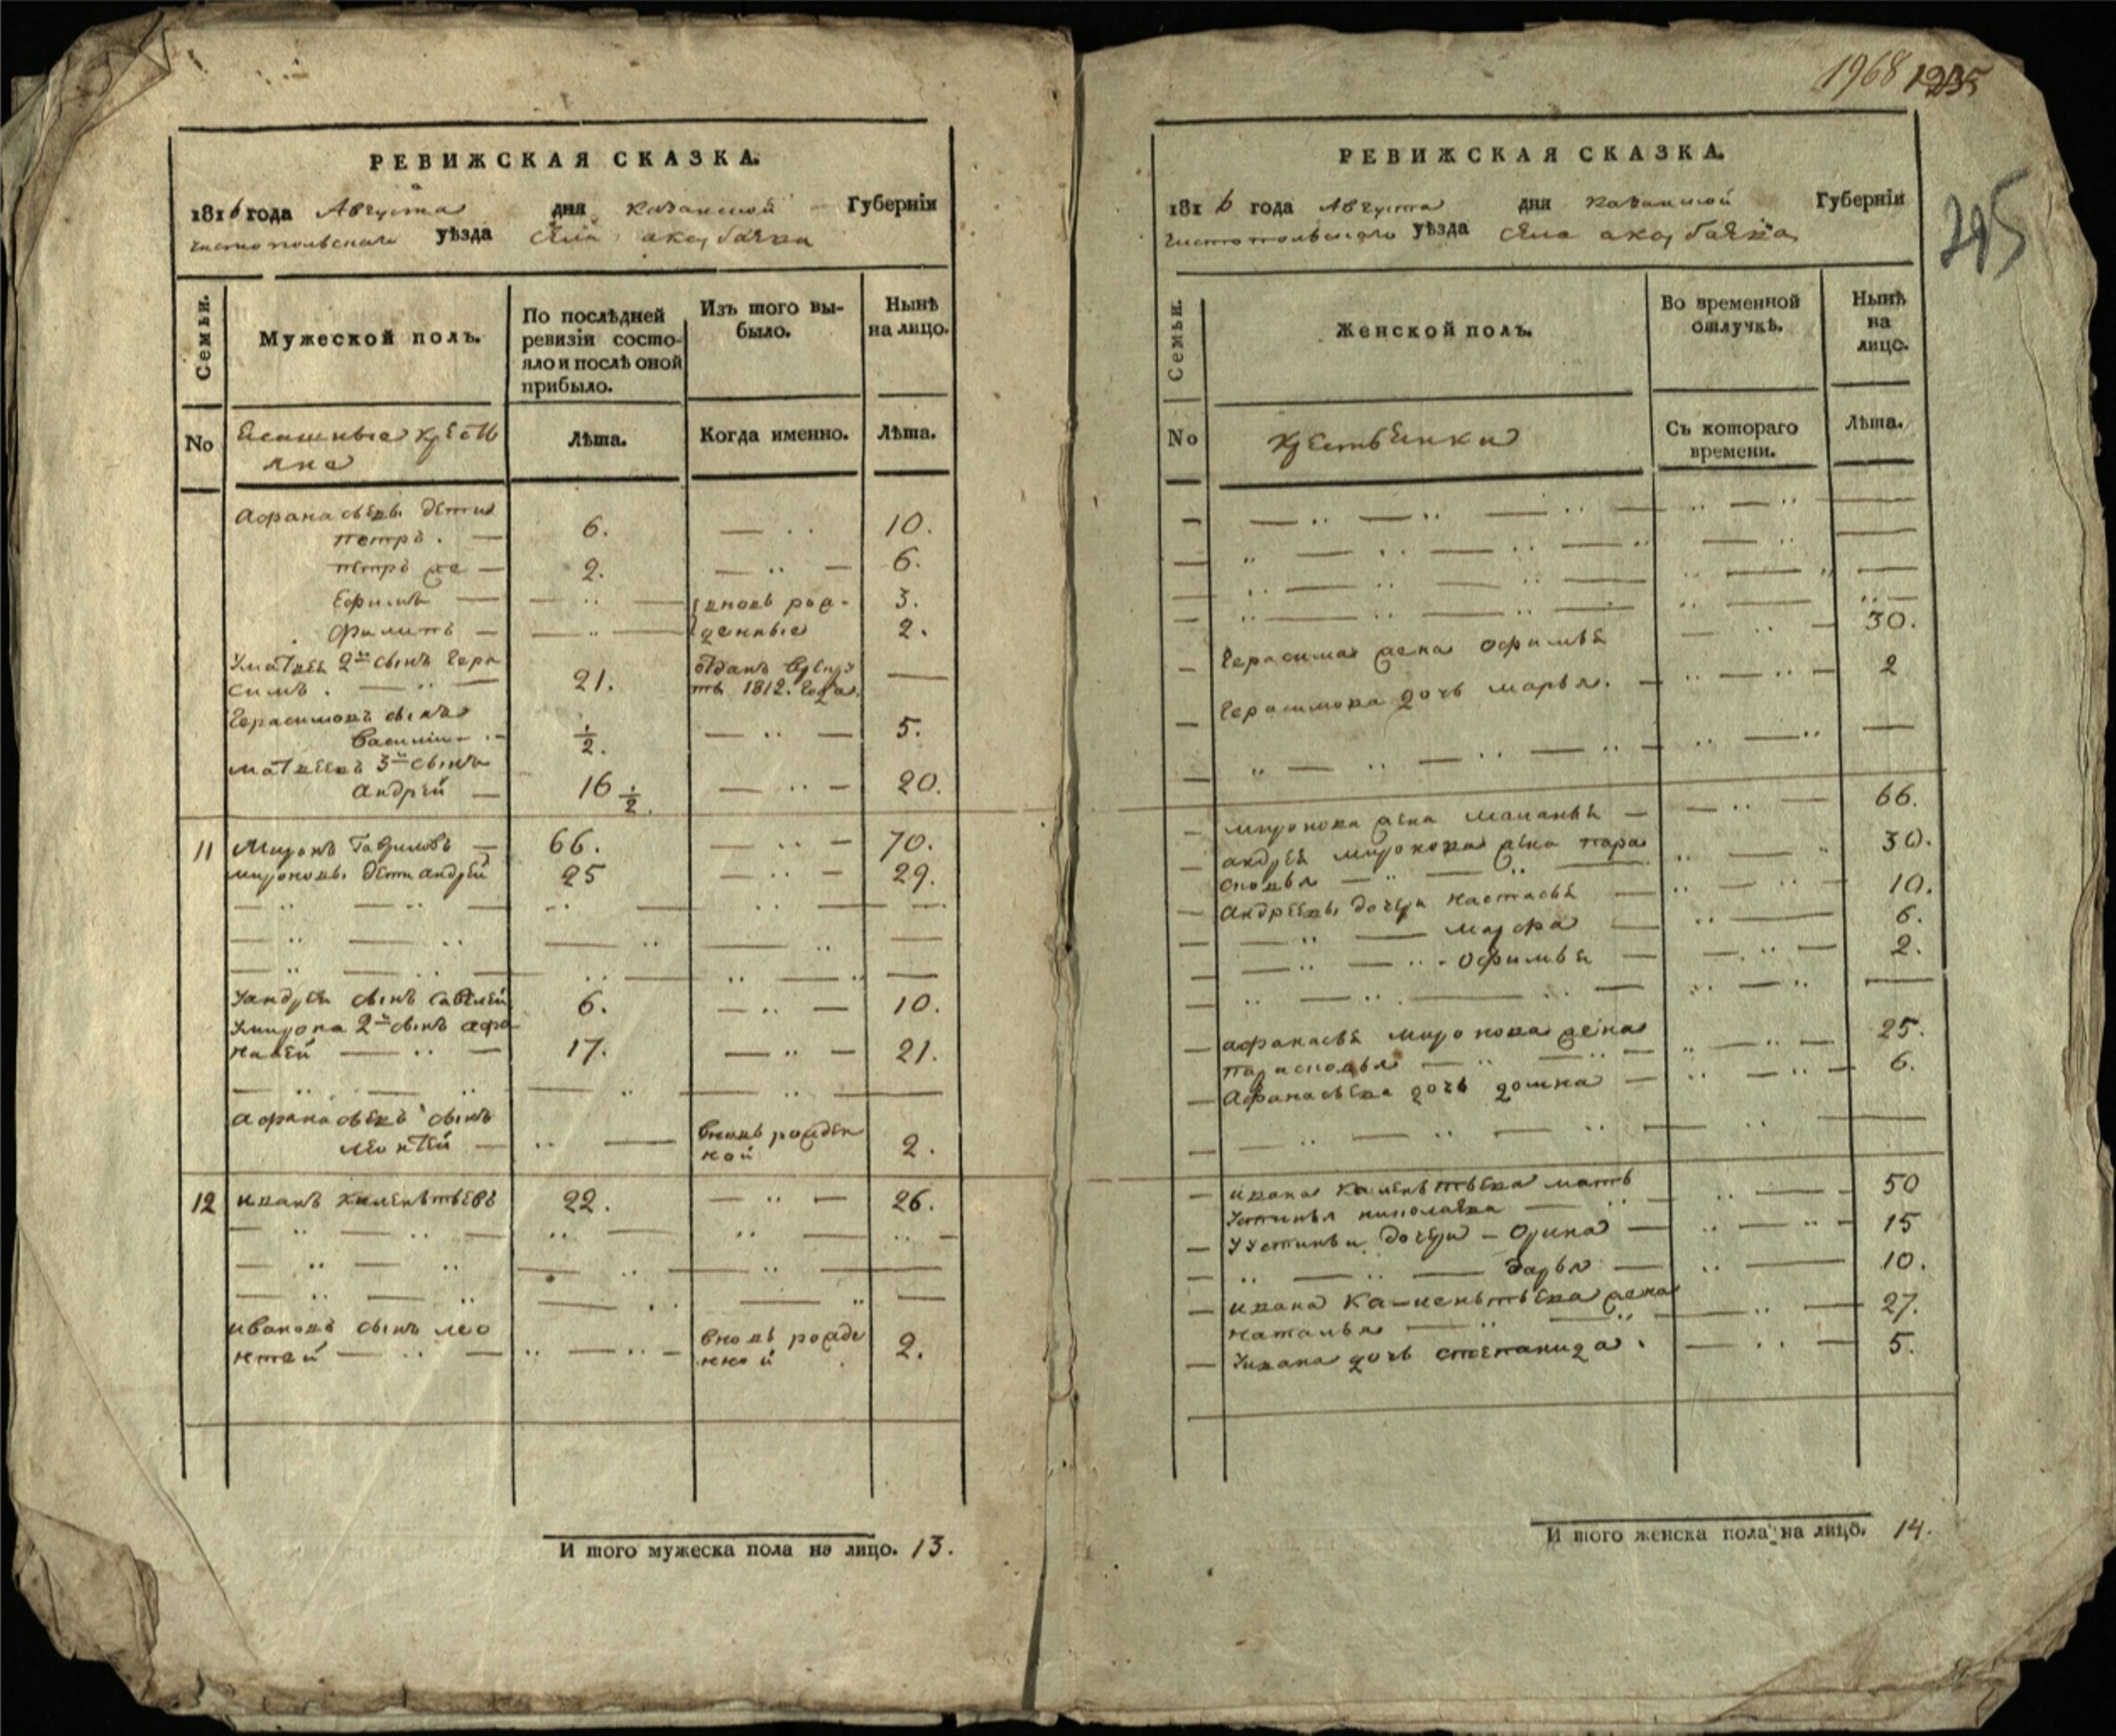 РЕВИЖСКАЯ СКАЗКА.
1816 года Августа дня казанской Губерніи
чистопольскаго уѣзда села аксубаева
Семьи.
Мужеской полъ.
По послѣдней
ревизіи состо-
яло и послѣ оной
прибыло.
Изъ того вы-
было.
Нынѣ
на лицо.
No
Ясашные кресть
яне
Лѣта.
Когда именно.
Лѣта.
Афанасьевы дети
петръ. 6. 10.
петръ же 2. 6.
Ефимъ вновь рож- 3.
Филипъ денные 2.
Уматвея 2й сынъ Гера
симъ. 21. отданъ врекру
ты 1812. года.
Герасимовъ сынъ
Василий 1/2. 5.
матвеевъ 3й сынъ
андрей 16 1/2. 20.
11 Миронъ Гавриловъ 66. 70.
мироновы дети андрей 25 29.
Уандрея сынъ савелей 6. 10.
Умирона 2й сынъ афа
насей 17. 21.
афанасьевъ сынъ
леонтей вновь рожден
ной 2.
12 иванъ клементьевъ 22. 26.
ивановъ сынъ лео
нтей вновь рожде
нной 2.
И того мужеска пола на лицо. 13.
1968 1235
295
РЕВИЖСКАЯ СКАЗКА.
1816 года Августа дня казанской Губерніи
чистопольскаго уѣзда села аксубаева
Семьи.
Женской полъ.
Во временной
отлучкѣ.
Нынѣ
на
лицо.
No
крестьянки
Съ котораго
времени.
Лѣта.
Герасима жена офимья 30.
Герасимова дочь марья. 2
миронова жена маланья 66.
андрея миронова жена пара
сковья 30.
Андреевы дочери настасья 10.
марфа 6.
офимья 2.
афанасья миронова жена
парасковья 25.
Афанасьева дочь домна 6.
ивана клементьева мать
устинья николаева 50
Уустиньи дочери Орина 15
дарья 10.
ивана клементьева жена
наталья 27.
Уивана дочь степанида. 5.
И того женска пола на лицо. 14.